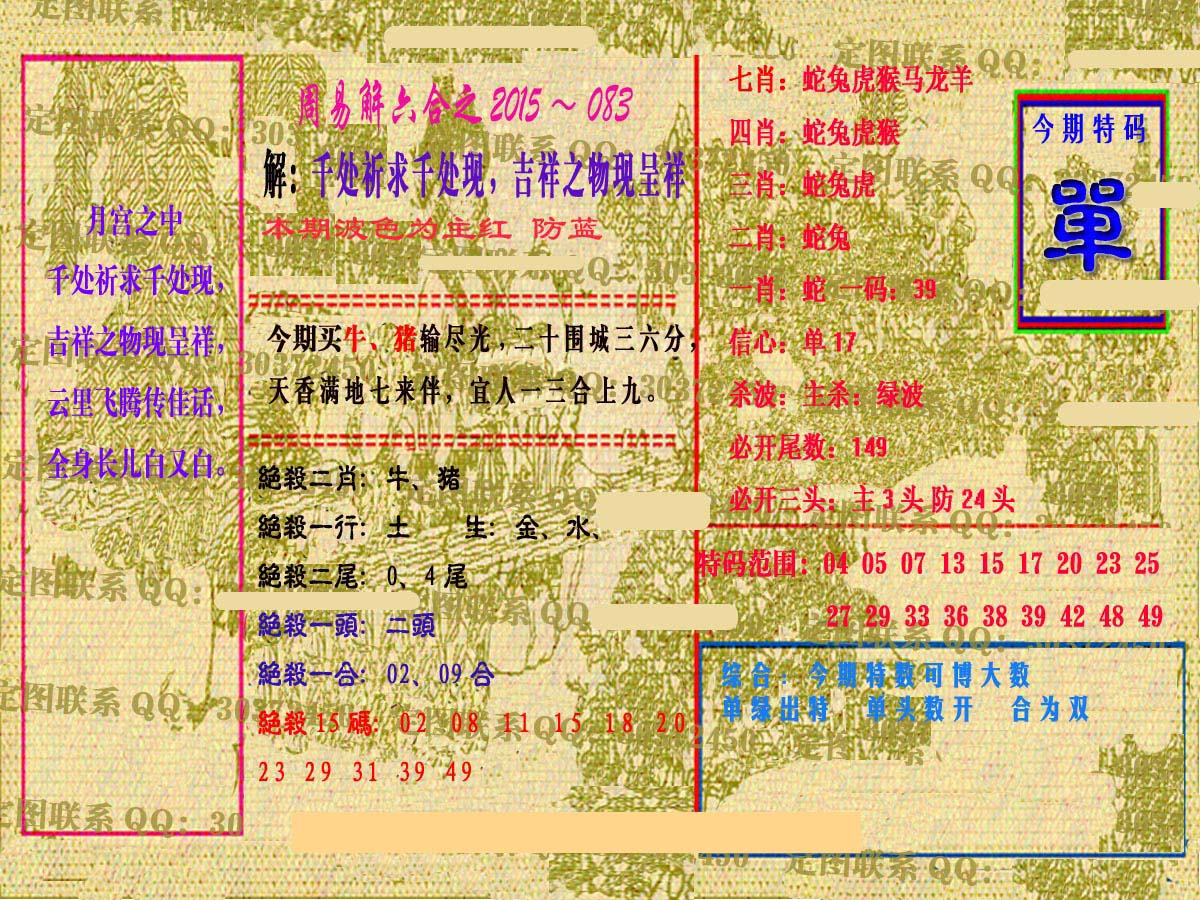 周易解六合之2015～083
解：千处祈求千处现，吉祥之物现呈祥
本期波色为主红 防蓝
月宫之中
千处祈求千处现，
吉祥之物现呈祥，
云里飞腾传佳话，
全身长儿白又白。
今期买牛、猪输尽光，二十围城三六分，
天香满地七来伴，宜人一三合上九。
絕殺二肖：牛、猪
絕殺一行：土 生：金、水、
絕殺二尾：0、4尾
絕殺一頭：二頭
絕殺一合：02、09合
絕殺15碼：02 08 11 15 18 20
23 29 31 39 49
七肖：蛇兔虎猴马龙羊
四肖：蛇兔虎猴
三肖：蛇兔虎
二肖：蛇兔
一肖：蛇 一码：39
信心：单17
杀波：主杀：绿波
必开尾数：149
必开三头：主3头防24头
今期特码
單
特码范围：04 05 07 13 15 17 20 23 25
27 29 33 36 38 39 42 48 49
综合：今期特数可博大数
单绿出特 单头数开 合为双
定图联系QQ：